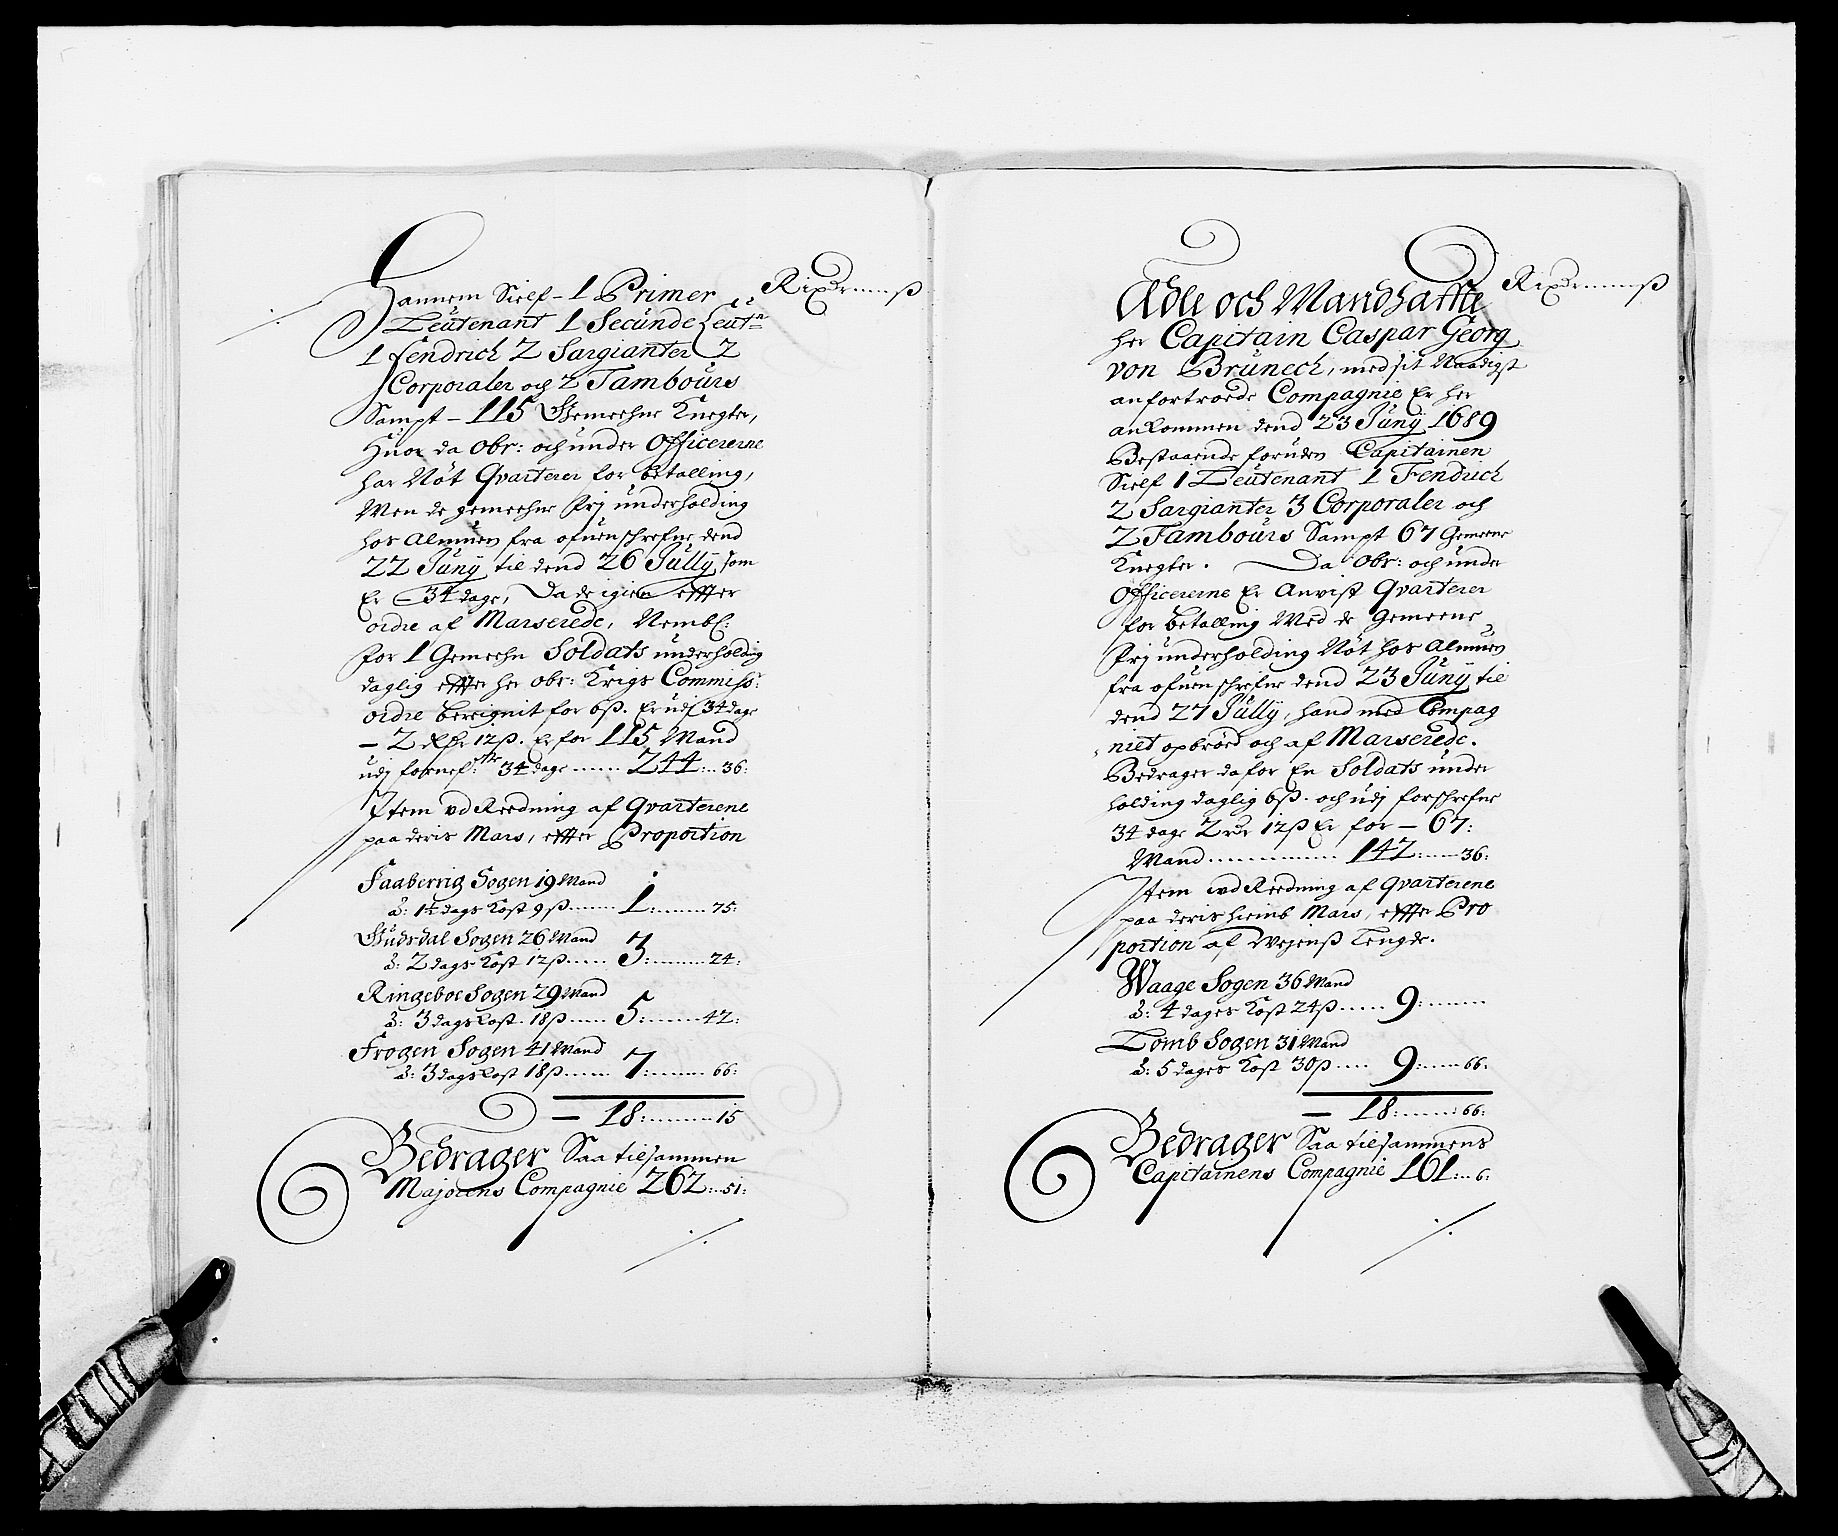 Rixdr ß
hannem Sielf - 1 Primer
Leutenant 1 Secunde Leutn
1 fendrich 2 Sargianter 2
Corporaler och 2 Tambours
Sampt - 115 Gemeehne Knegter,
Huor da Obr: och under Officererne
har Nöt Qvarterer for betalling,
Men de gemeehne fry underholding
hos Almuen fra ofuenschrefne dend
22 Juny til dend 26 Jully, som
Er 34 dage, Da de igien effter
ordre af Marserede, Nembl:
for 1 Gemeehn Soldats underholding
daglig effter her Obr: Krigs Commiss:
ordre bereignit for 6ß. Er udj 34 dage
- 2 Rdr 12ß. Er for 115 Mand
udj fornefte 34 dage ...... 244:.. 36:
Item ved Reedning af Qvarterene
paa deris Mars, effter Proportion
Faaberrig Sogen 19 Mand
à: 1½ dags Kost 9ß ....... 1: ........ 75:
Gudsdal Sogen 26 Mand
à: 2 dags Kost 12ß ...... 3: ........ 24:
Ringeboe Sogen 29 Mand
à: 3 dags Kost 18ß ...... 5: ........ 42:
Frogen Sogen 41 Mand
à: 3 dags Kost 18ß ....... 7: ........ 66:
- 18: ......... 15
Bedrager Saa tilsammen
Majorens Compagnie 262:.. 51:
Rixdr ß
Adle och Mandhaffte
her Capitain Caspar Georg
von Brunech, med sit Naadigst
anfortroede Compagnie Er her
ankommen dend 23 Juny 1689
Bestaaende foruden Capitainen
Sielf 1 Leutenant 1 Fendrich
2 Sargianter 3 Corporaler och
2 Tambours Sampt 67 Gemeene
Knegter. Da Obr: och under
Officererne Er Anvist Qvarterer
for betalling Med de Gemeene
fry underholding Nöt hos Almuen
fra ofuenschrefne dend 23 Juny til
dend 27 Jully, hand med Compag
niet opbröed och af Marserede.
Bedrager da for En Soldats under
holding daglig 6ß. och udj forschrefne
34 dage 2 rdr 12ß Er for - 67:
Mand ............... 142: ..... 36:
Item ved Reedning af Qvarterene
paa deris hiemb Mars, effter Pro
portion af Vejens Lengde.
Waage Sogen 36 Mand
à: 4 dages Kost 24ß ..... 9: .........
Lomb Sogen 31 Mand
à: 5 dages Kost 30ß ..... 9: ...... 66:
- 18: ........ 66:
Bedrager Saa tilsammens
Capitainens Compagnie 161:.. 6: